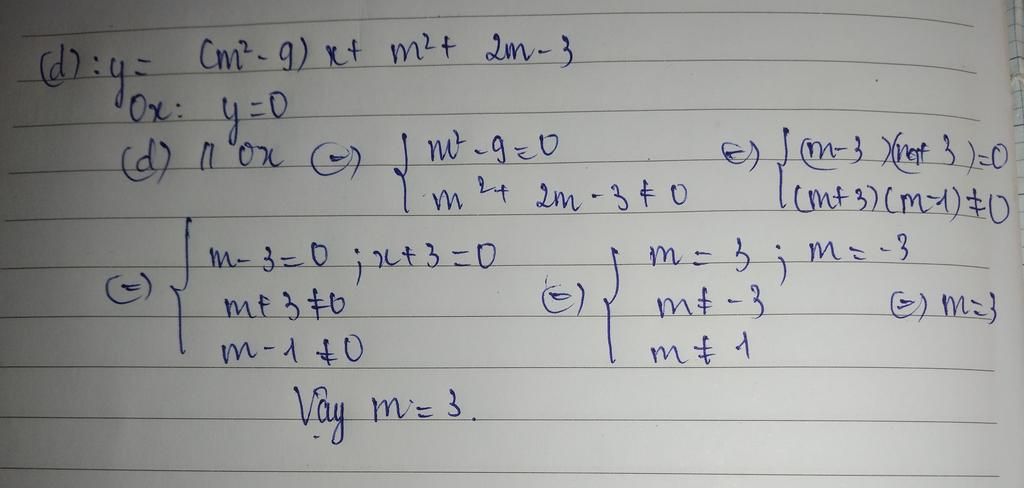 (d): y = (m² - 9) x + m² + 2m - 3
Ox: y = 0
(d) // Ox ⇔ { m² - 9 = 0 ; m² + 2m - 3 ≠ 0 ⇔ { (m - 3)(m + 3) = 0 ; (m + 3)(m - 1) ≠ 0
⇔ { m - 3 = 0 ; x + 3 = 0 ⇔ { m = 3 ; m = -3
m + 3 ≠ 0 m ≠ -3 ⇔ m = 3
m - 1 ≠ 0 m ≠ 1
Vậy m = 3.